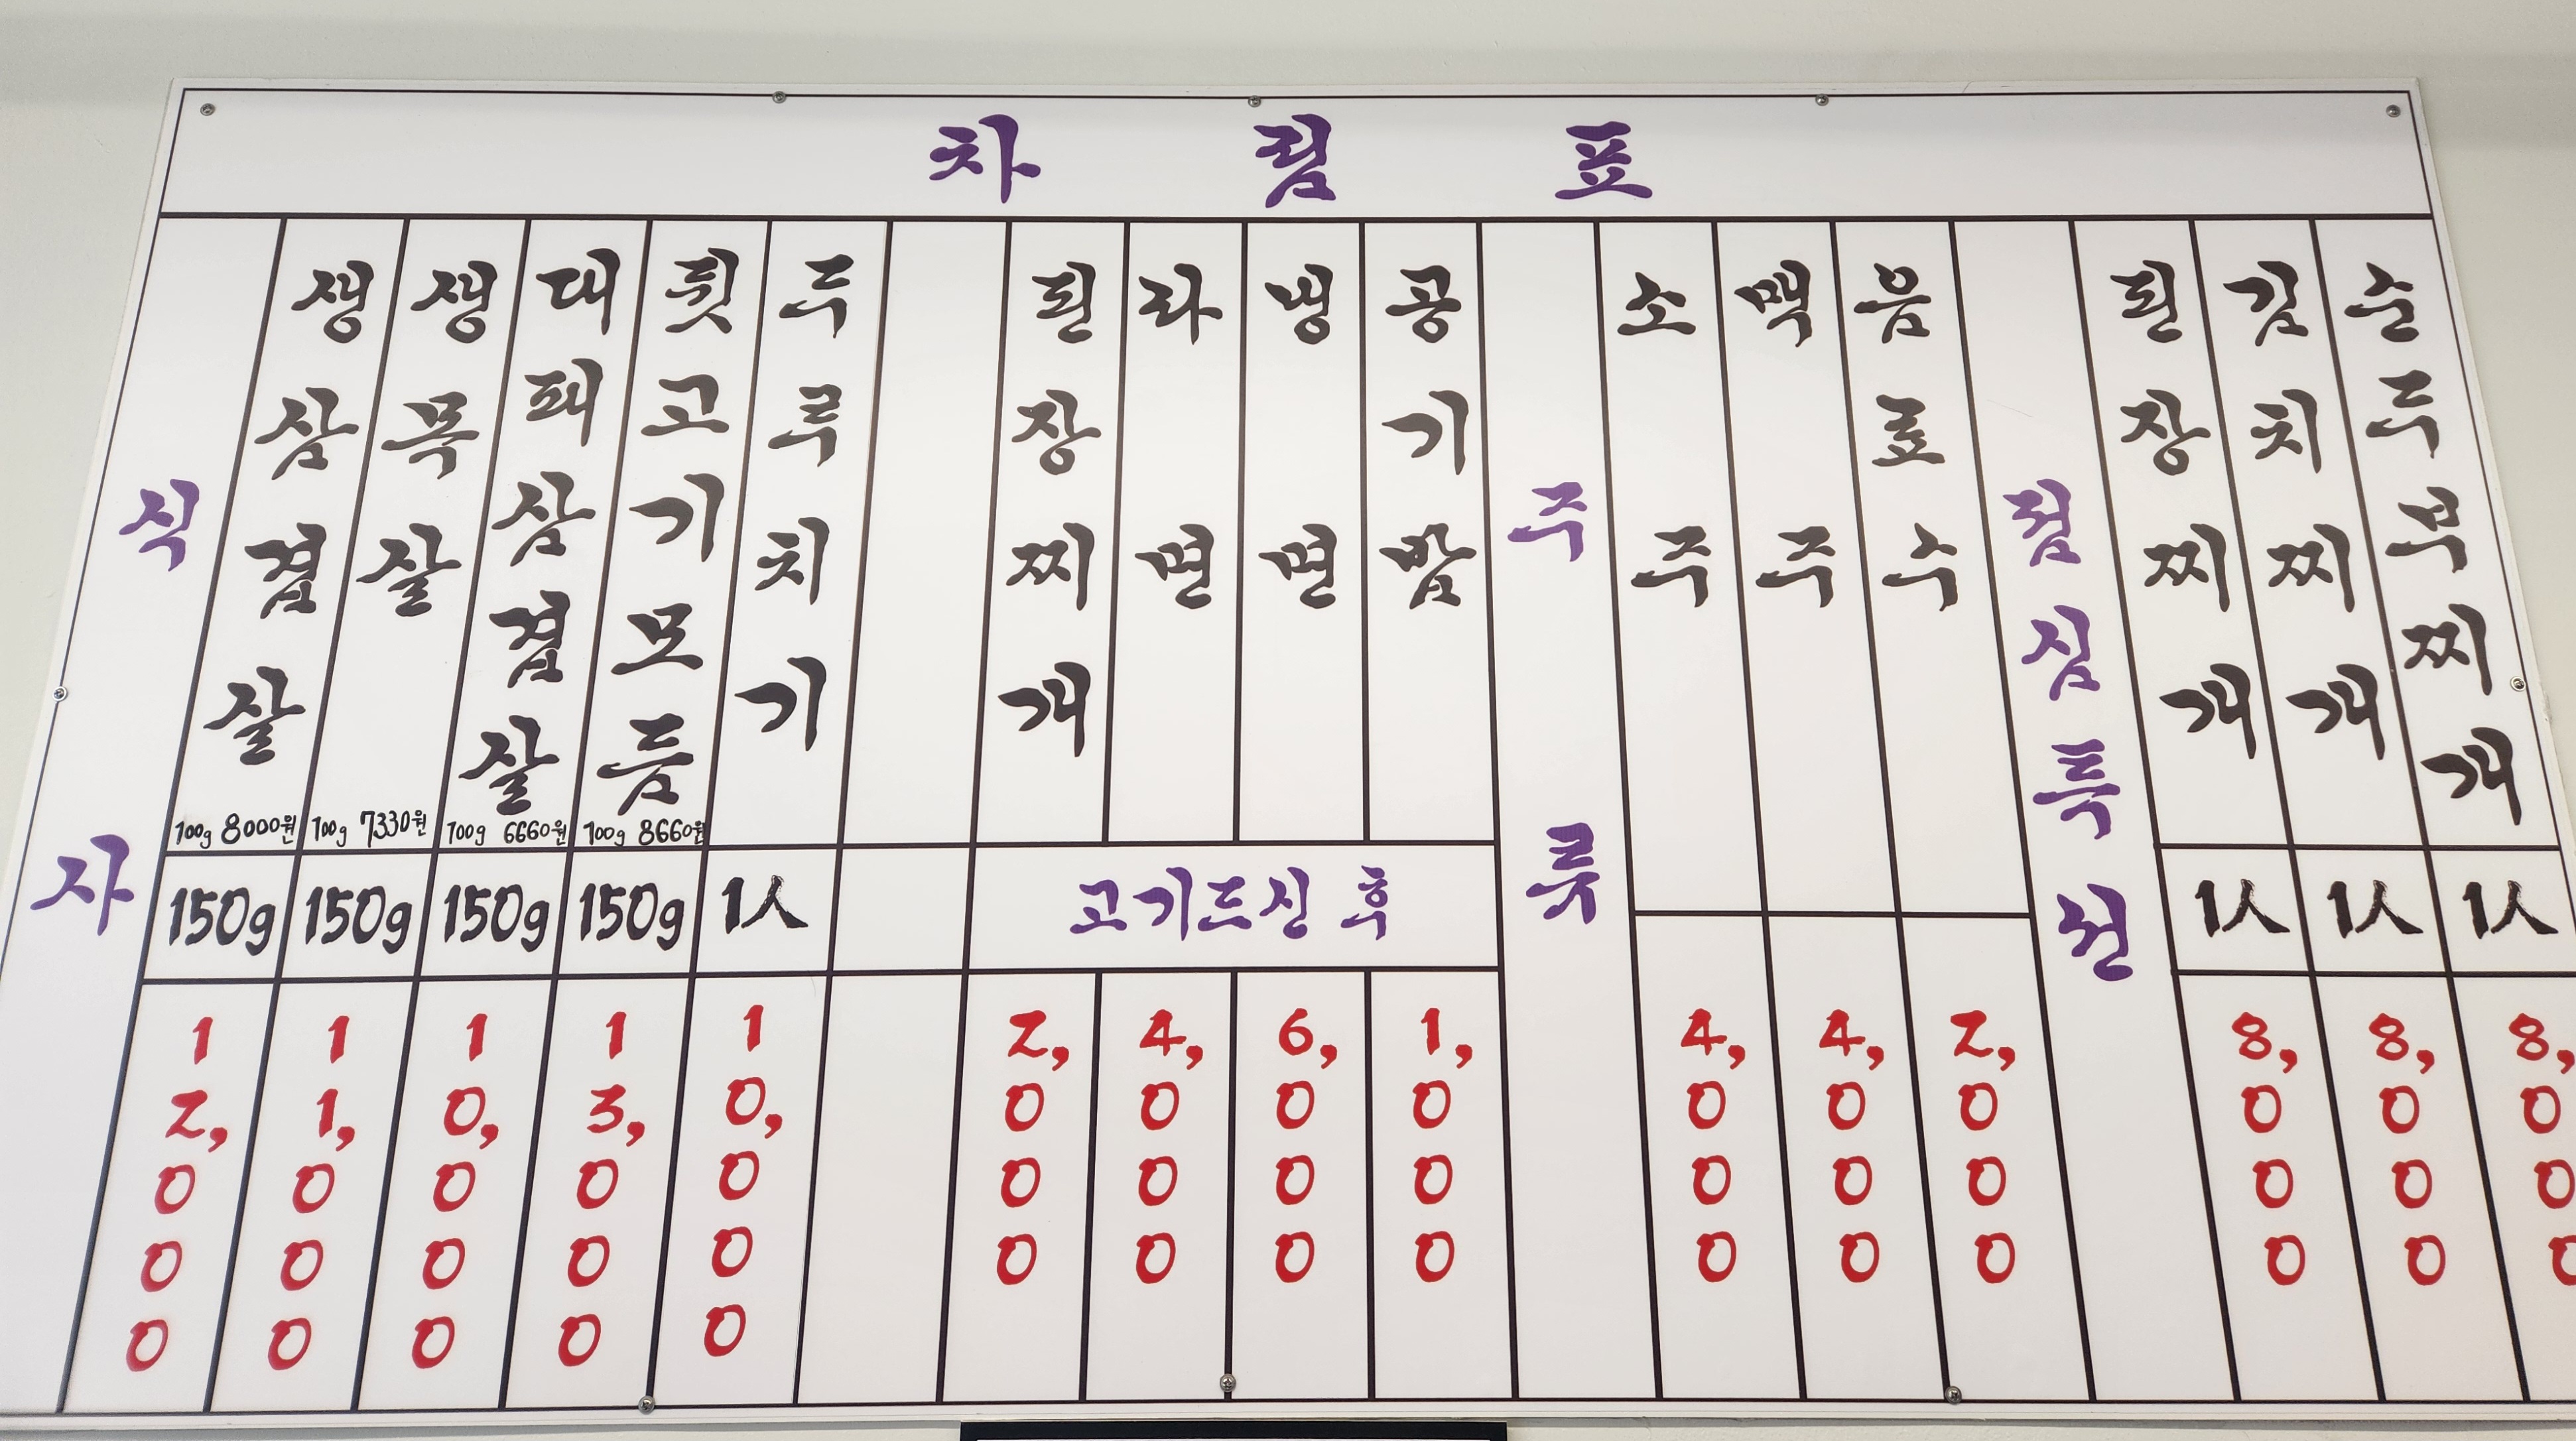 차림표
식사
생삼겹살 100g 8000원 150g 12,000
생목살 100g 7330원 150g 11,000
대패삼겹살 100g 6660원 150g 10,000
뒷고기모듬 100g 8660원 150g 13,000
두루치기 1人 10,000
고기드신 후
된장찌개 2,000
라면 4,000
냉면 6,000
공기밥 1,000
주류
소주 4,000
맥주 4,000
음료수 2,000
점심특선
된장찌개 1人 8,000
김치찌개 1人 8,000
순두부찌개 1人 8,000